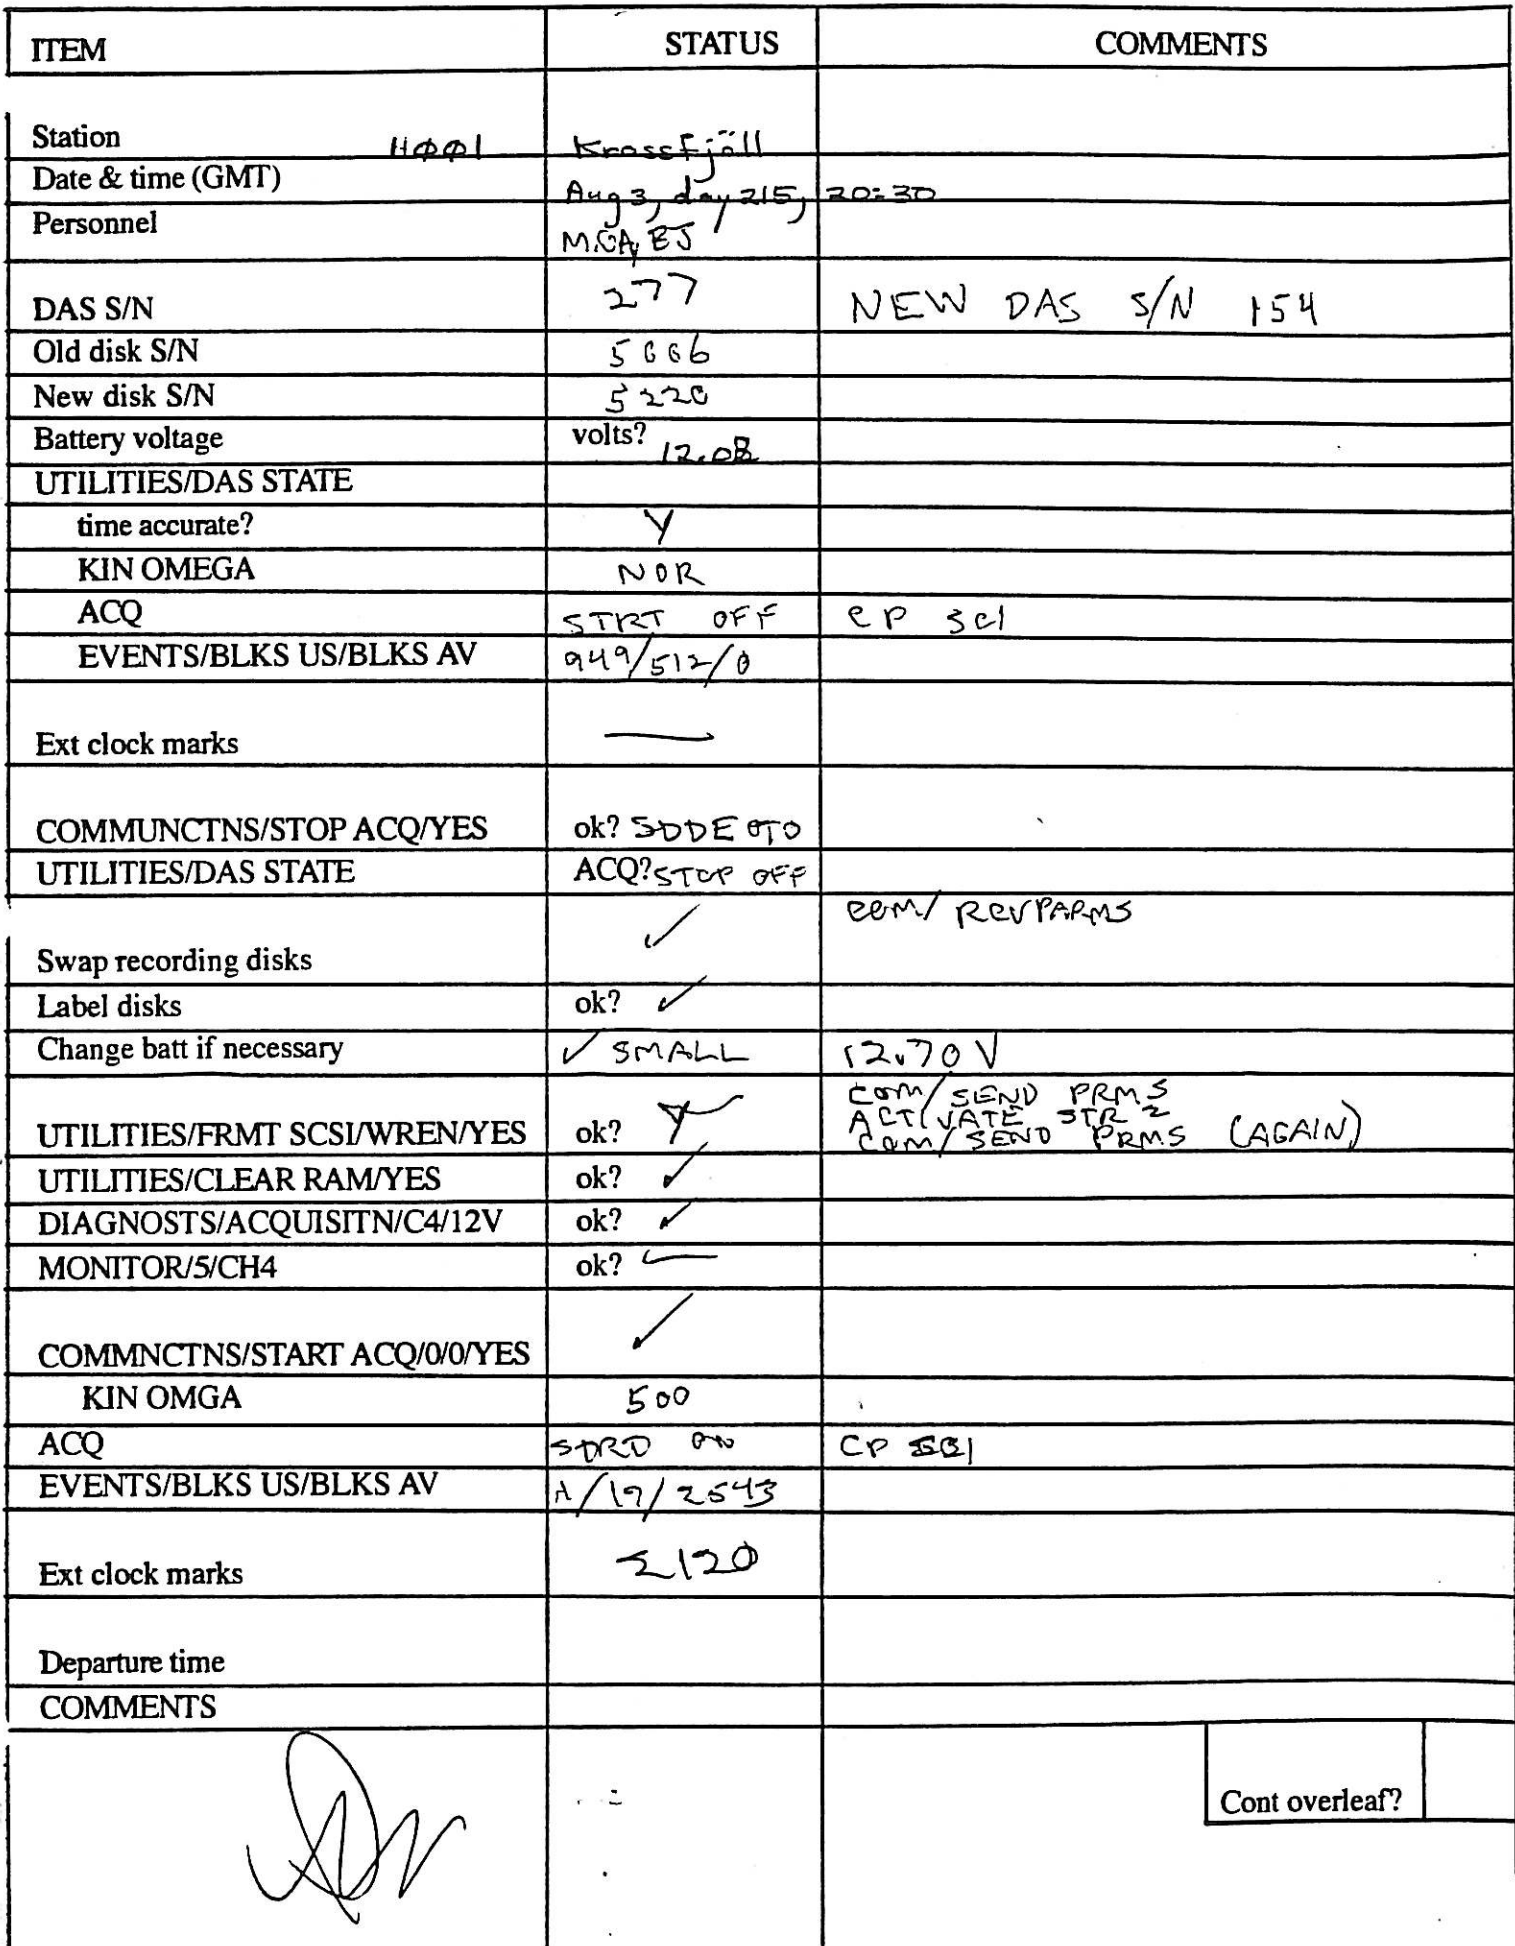 ITEM STATUS COMMENTS
Station HØØ1 Krossfjöll
Date & time (GMT) Aug 3, day 215, 20:30
Personnel M.GA, EJ
DAS S/N 277 NEW DAS S/N 154
Old disk S/N 5666
New disk S/N 5220
Battery voltage volts? 12.08
UTILITIES/DAS STATE
time accurate? Y
KIN OMEGA NOR
ACQ STRT OFF CP SCI
EVENTS/BLKS US/BLKS AV 949/512/0
Ext clock marks —
COMMUNCTNS/STOP ACQ/YES ok?
UTILITIES/DAS STATE ACQ? STOP OFF
COM/ RCVPARMS
Swap recording disks ✓
Label disks ok? ✓
Change batt if necessary ✓ SMALL 12.70 V
COM/SEND PRMS
ACTIVATE STR 2
UTILITIES/FRMT SCSI/WREN/YES ok? Y COM/SEND PRMS (AGAIN)
UTILITIES/CLEAR RAM/YES ok? ✓
DIAGNOSTS/ACQUISITN/C4/12V ok? ✓
MONITOR/5/CH4 ok? —
COMMNCTNS/START ACQ/0/0/YES ✓
KIN OMGA 500
ACQ ON CP
EVENTS/BLKS US/BLKS AV /19/2543
Ext clock marks 120
Departure time
COMMENTS
Cont overleaf?